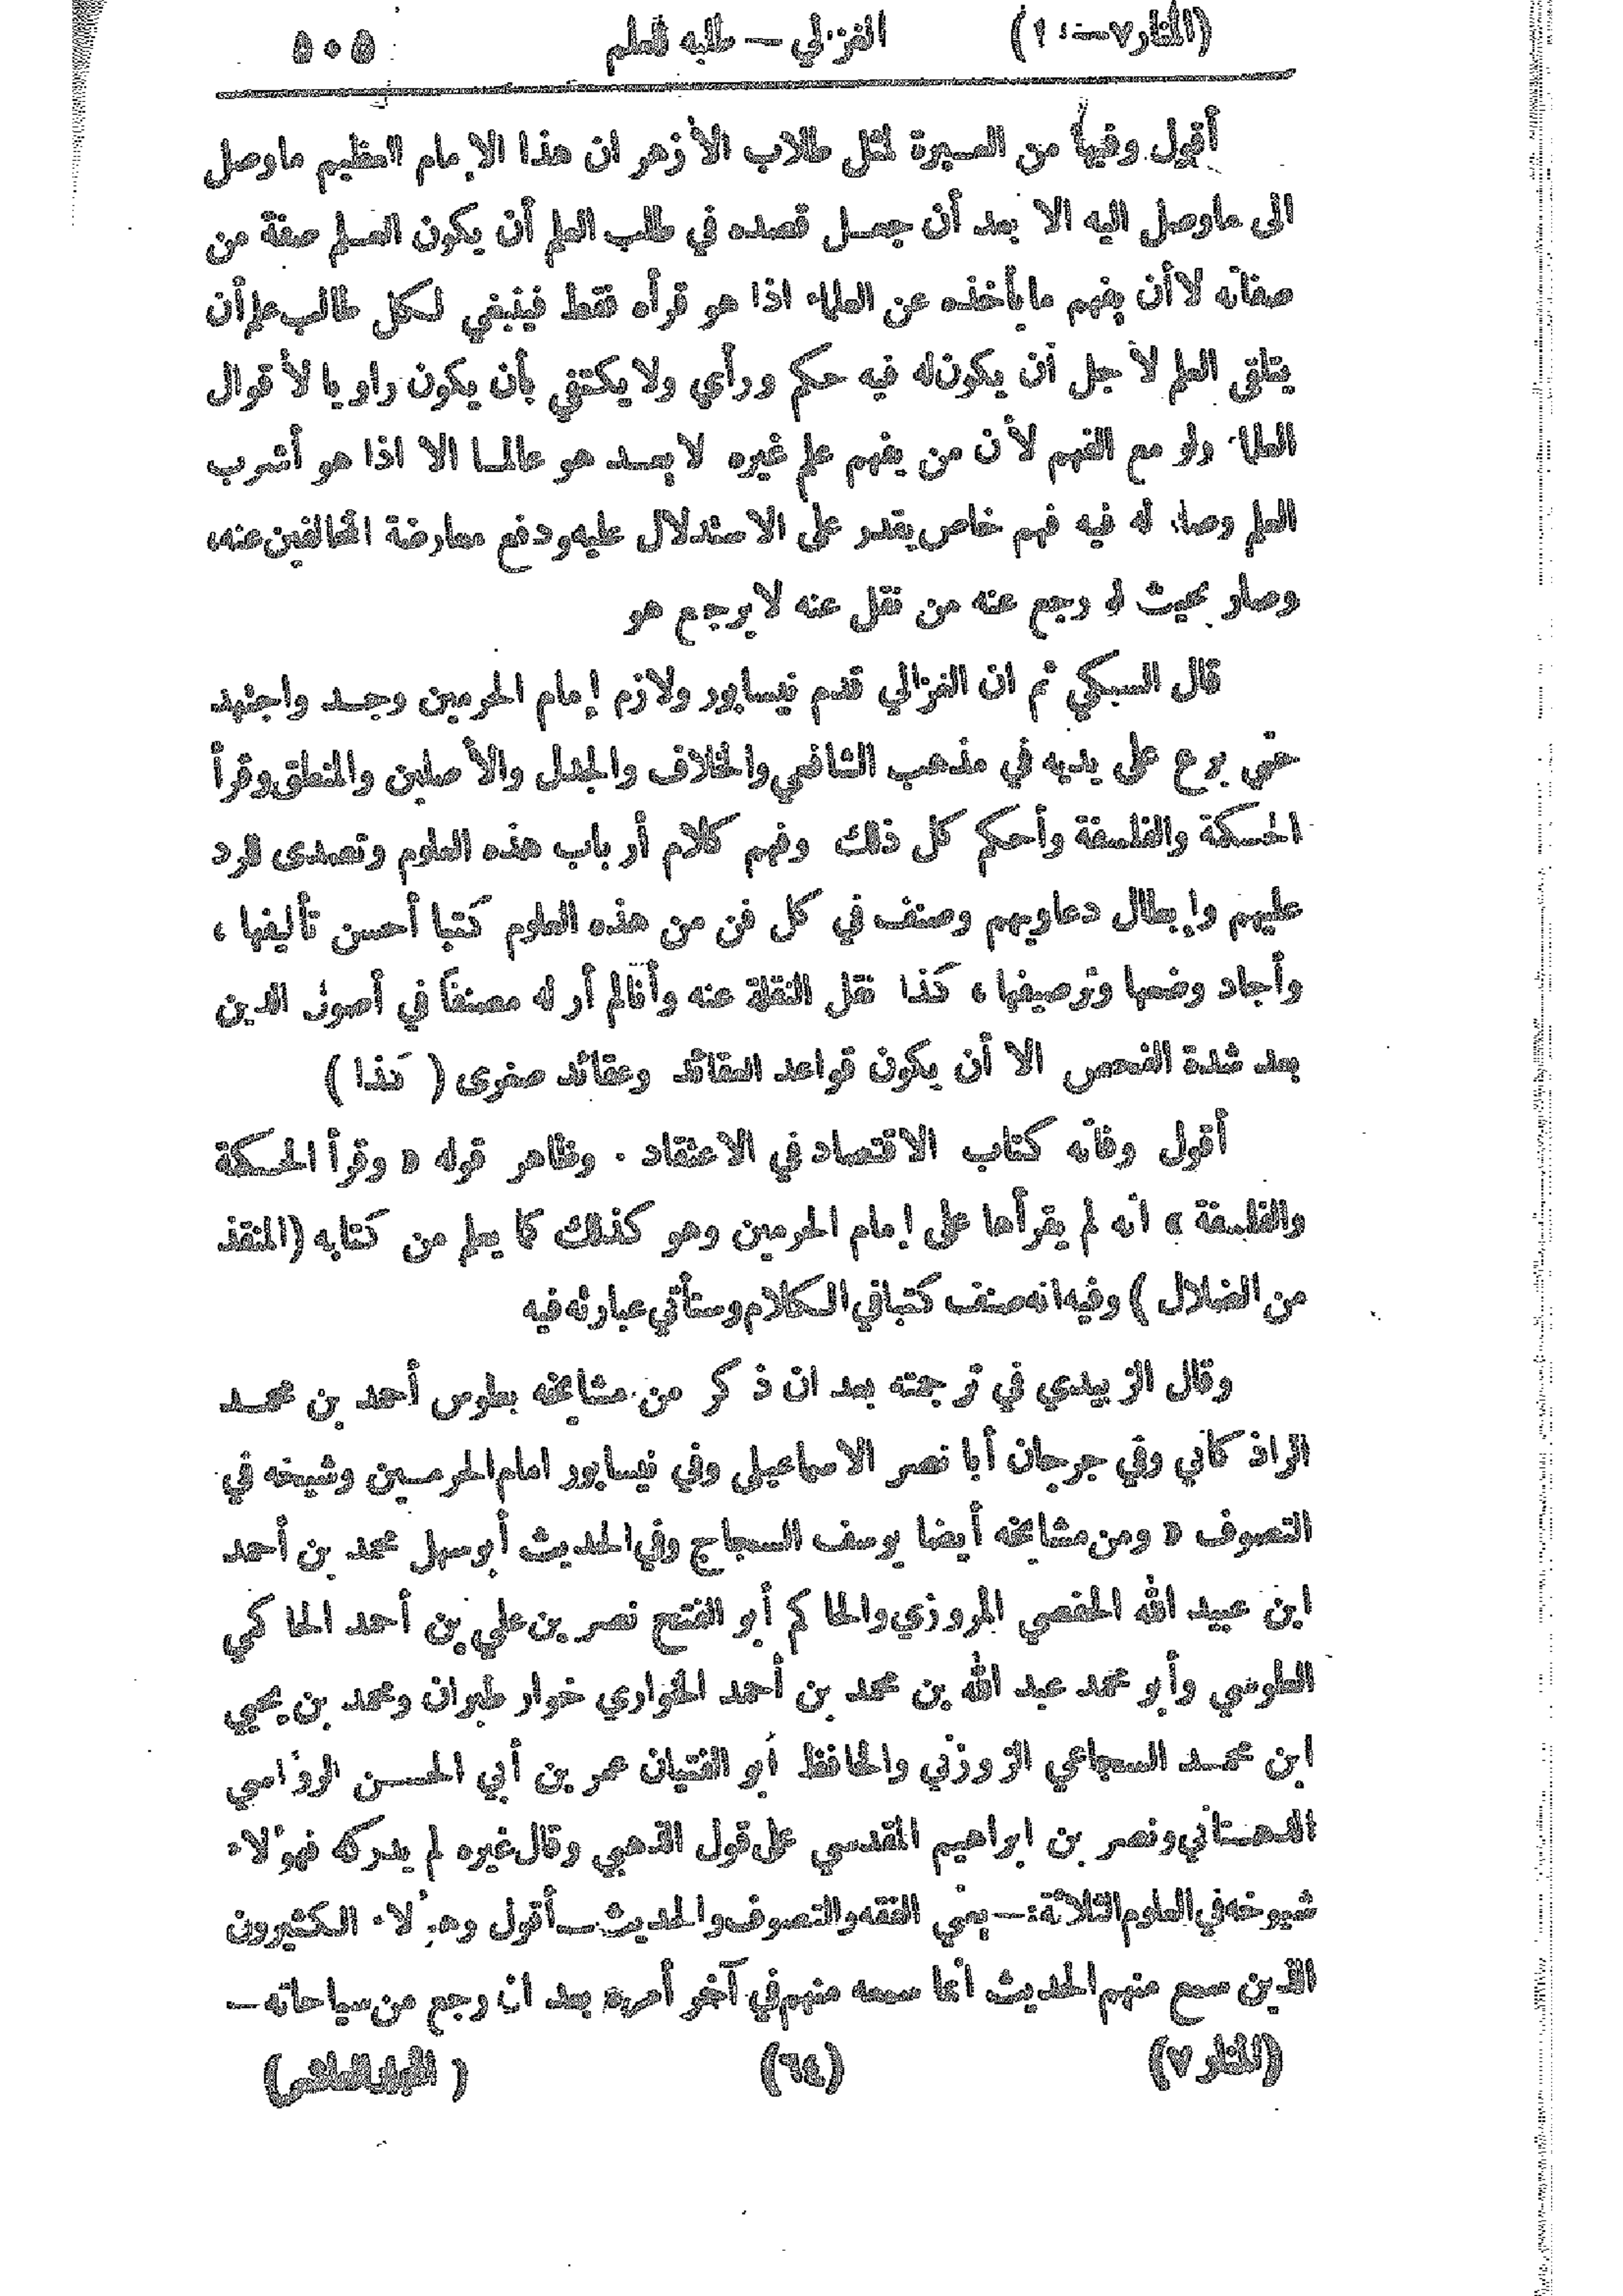 (المنار ٧ – ١٠) الغزالي — طلبه للعلم ٥٠٥
أقول وفيها من العبرة لمثل طلاب الأزهر ان هذا الإمام العظيم ماوصل
الى ماوصل اليه الا بعد أن جعل قصده في طلب العلم أن يكون العلم صفة من
صفاته لا أن يفهم مايأخذه عن العلماء اذا هو قرأه فقط فينبغي لكل طالب علم أن
يتلقى العلم لأجل أن يكون له فيه حكم ورأي ولا يكتفي بأن يكون راويا لأقوال
العلماء ولو مع الفهم لأن من يفهم علم غيره لايعد هو عالما الا اذا هو أشرب
العلم وصار له فيه فهم خاص يقدر على الاستدلال عليه ودفع معارضة المخالفين عنه،
وصار بحيث لو رجع عنه من نقل عنه لا يرجع هو
قال السبكي ثم ان الغزالي قدم نيسابور ولازم إمام الحرمين وجد واجتهد
حتى برع على يديه في مذهب الشافعي والخلاف والجدل والأصلين والمنطق وقرأ
الحكمة والفلسفة وأحكم كل ذلك وفهم كلام أرباب هذه العلوم وتصدى للرد
عليهم وإبطال دعاويهم وصنف في كل فن من هذه العلوم كتبا أحسن تأليفها ،
وأجاد وضعها وترصيفها ، كذا نقل النقلة عنه وأنالم أر له مصنفاً في أصول الدين
بعد شدة الفحص الا أن يكون قواعد العقائد وعقائد صغرى ( كذا )
أقول وفاته كتاب الاقتصاد في الاعتقاد . وظاهر قوله « وقرأ الحكمة
والفلسفة » انه لم يقرأها على إمام الحرمين وهو كذلك كما يعلم من كتابه (المنقذ
من الضلال ) وفيه انه صنف كتبا في الكلام وستأتي عبارته فيه
وقال الزبيدي في ترجمته بعد ان ذكر من مشايخه بطوس أحمد بن محمد
الراذكاني وفي جرجان أبا نصر الاسماعيلي وفي نيسابور امام الحرمين وشيخه في
التصوف « ومن مشايخه أيضا يوسف السجاج وفي الحديث أبو سهل محمد بن أحمد
ابن عبيد الله الحفصي المروزي والحاكم أبو الفتح نصر بن علي بن أحمد الحاكمي
الطوسي وأبو محمد عبد الله بن محمد بن أحمد الخواري خوار طبران ومحمد بن يحيى
ابن محمد السجاعي الزوزني والحافظ أبو الفتيان عمر بن أبي الحسن الرؤاسي
الدهستاني ونصر بن ابراهيم المقدسي على قول الذهبي وقال غيره لم يدركه فهؤلاء
شيوخه في العلوم الثلاثة:— يعني الفقه والتصوف والحديث — أقول وهؤلاء الكثيرون
الذين سمع منهم الحديث انما سمعه منهم في آخر أمره بعد ان رجع من سياحاته —
(المنار ٧) (٦٤) (المجلد السابع)